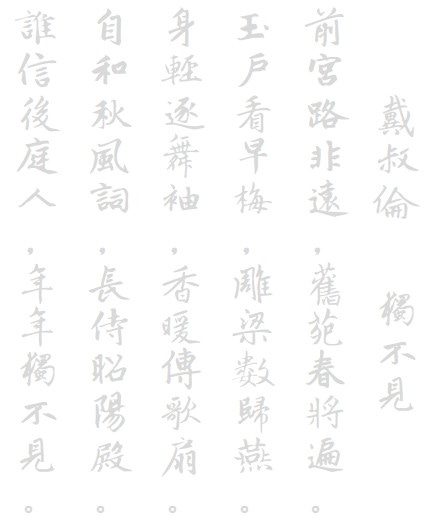 戴叔倫　獨不見
前宮路非遠，舊苑春將遍。
玉戶看早梅，雕梁数歸燕。
身輕逐舞袖，香暖傳歌扇。
自和秋風詞，長侍昭陽殿。
誰信後庭人，年年獨不見。